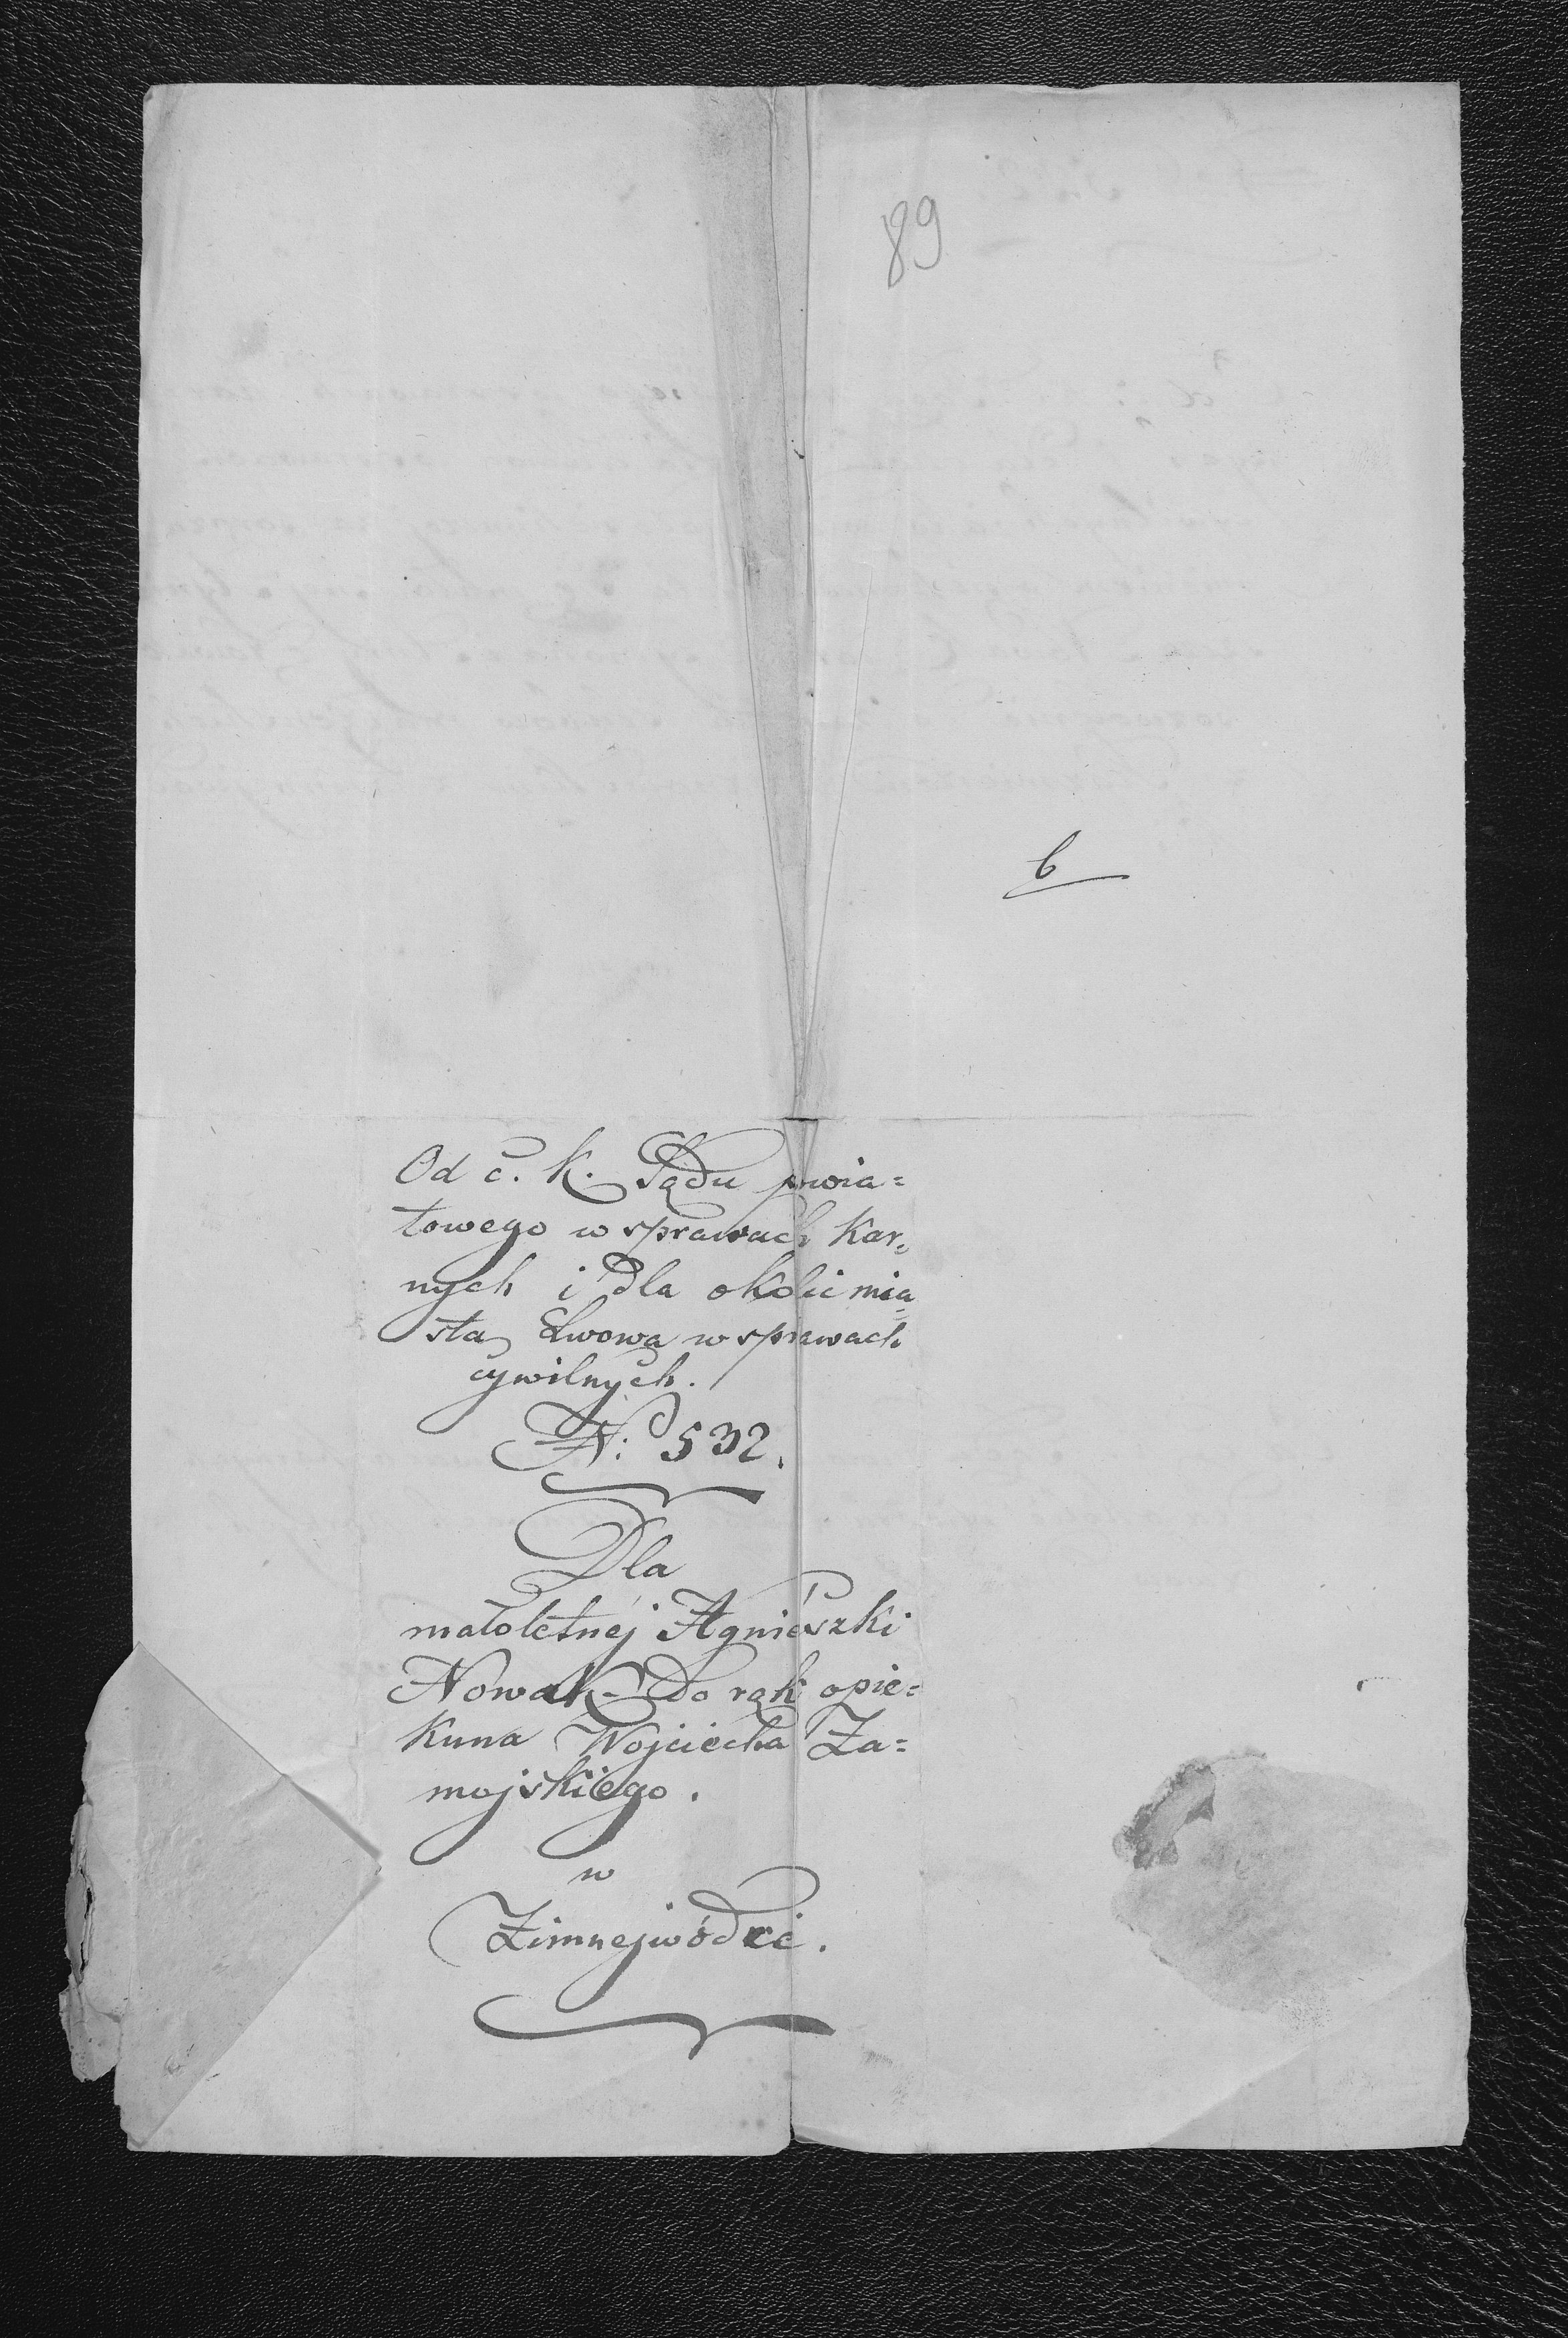 89
6
Od c. k. Sądu powia=
towego w sprawach kar=
nych i dla okolic mia=
sta Lwowa w sprawach
cywilnych.
N: 532.
Dla
małoletnéj Agnieszki
Nowak do rąk opie=
kuna Wojciecha Za=
mojskiego.
w
Zimnejwódce.